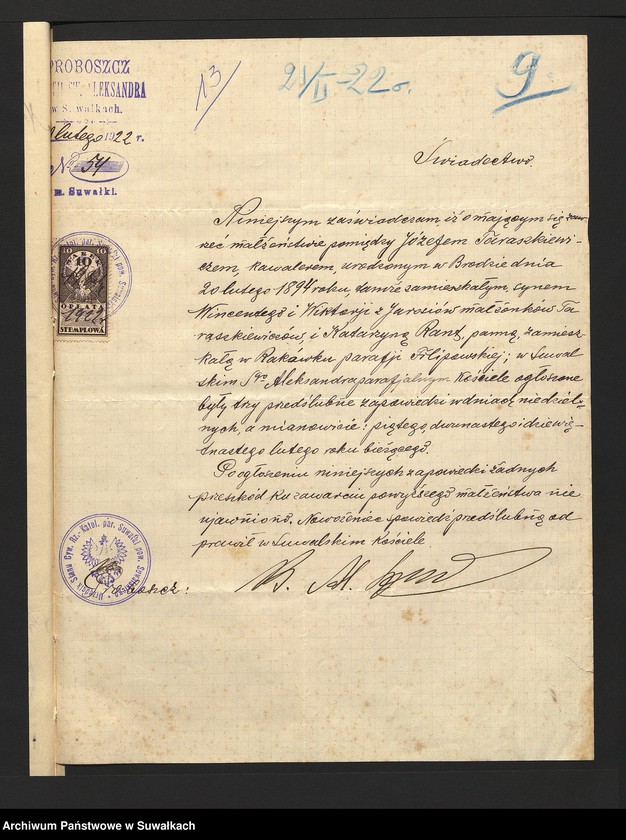 PROBOSZCZ
ST. ALEKSANDRA
w Suwałkach.
lutego 1922 r.
№ 54
m. Suwałki.
13
21/II-22 r.
9
Świadectwo
Niniejszym zaświadczam, iż o mającym się zaw-
rzec małżeństwie pomiędzy Józefem Taraszkiewi-
czem, kawalerem, urodzonym w Brodzie dnia
20 lutego 1894 roku, tamże zamieszkałym, synem
Wincentego i Wiktorji z Jarosiów małżonków Ta-
raszkiewiczów, i Katarzyną Rant, panną, zamiesz-
kałą w Rakówku parafji Filipowskiej; w Suwal-
skim Sgo Aleksandra parafjalnym Kościele ogłoszone
były trzy przedślubne zapowiedzi w dniach niedziel-
nych, a mianowicie: piątego, dwunastego i dziewię-
tnastego lutego roku bieżącego.
Po ogłoszeniu niniejszych zapowiedzi żadnych
przeszkód ku zawarciu powyższego małżeństwa nie
ujawniono. Nowożeniec spowiedź przedślubną od
prawił w Suwalskim Kościele
10 10
1922 r.
OPŁATA
STEMPLOWA
Urzędnik Stanu Cyw. Rz.-Katol. par. Suwałki pow. Suwalski
Proboszcz:
Archiwum Państwowe w Suwałkach